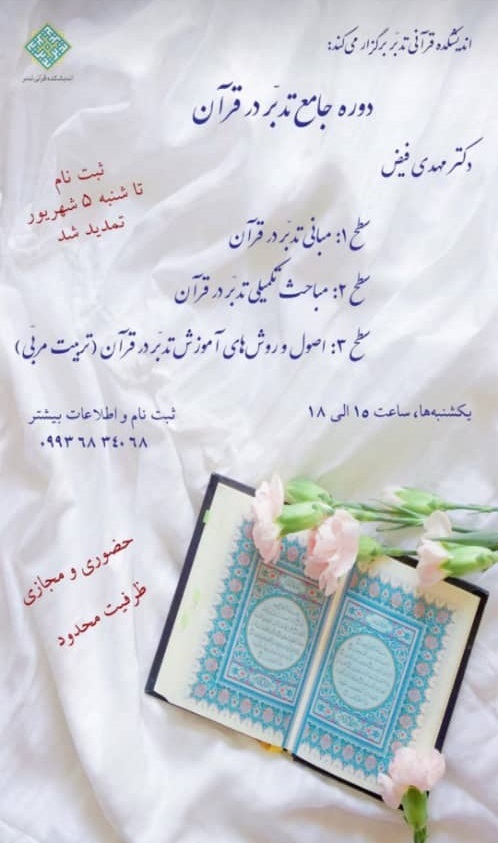 اندیشکده قرآنی تدبّر برگزار می‌کند:
اندیشکده قرآنی تدبر
دوره جامع تدبّر در قرآن
دکتر مهدی فیض
ثبت نام
تا شنبه ۵ شهریور
تمدید شد
سطح ۱: مبانی تدبّر در قرآن
سطح ۲: مباحث تکمیلی تدبّر در قرآن
سطح ۳: اصول و روش‌های آموزش تدبّر در قرآن (تربیت مربّی)
یکشنبه‌ها، ساعت ۱۵ الی ۱۸
ثبت نام و اطلاعات بیشتر
۰۹۹۳ ۶۸ ۳۴۰ ۶۸
حضوری و مجازی
ظرفیت محدود